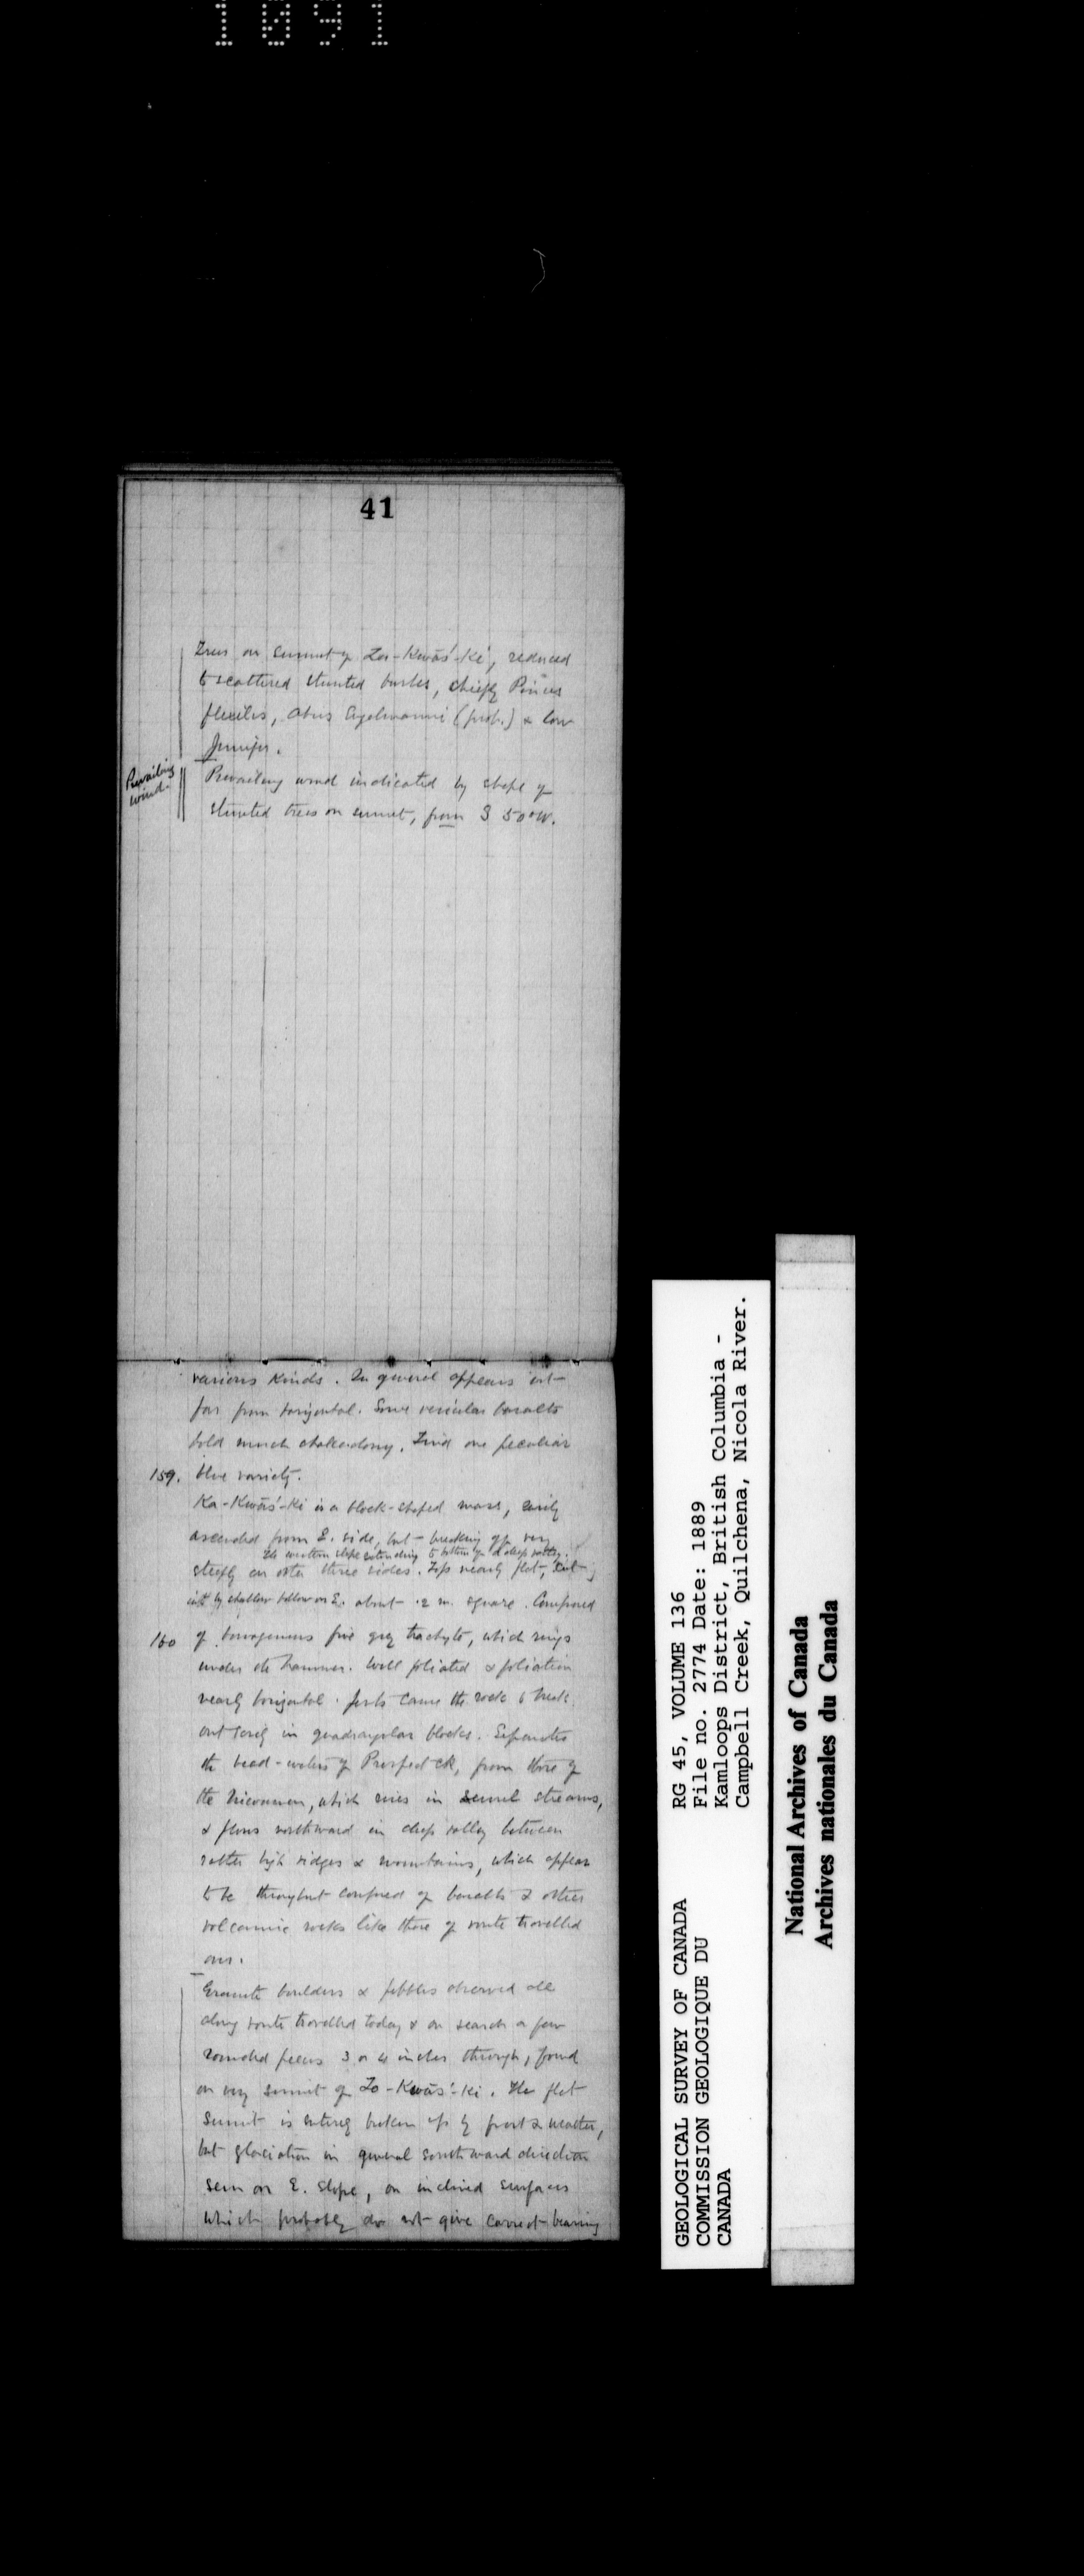 1091
41
Trees on summit of Za-Kwās'-Ki, reduced
to scattered stunted bushes, chiefly Pinus
flexilis, Abies Engelmanni (prob.) & low
Juniper.
Prevailing
wind.
Prevailing wind indicated by shape of
stunted trees on summit, from S 50° W.
various kinds. In general appears not
far from horizontal. Some vesicular basalts
hold much chalcedony. Find one peculiar
159. blue variety.
Za-Kwās'-Ki is a block-shaped mass, easily
ascended from E. side, but breaking off very
The western slope extending to bottom of a deep valley.
steeply on other three sides. Top nearly flat, cut
into by shallow hollow on E. about .2 m. square. Composed
160 of homogeneous fine grey trachyte, which rings
under the hammer. Well foliated & foliation
nearly horizontal. Joints cause the rock to break
out in quadrangular blocks. Separates
the head-waters of Prospect Ck, from those of
the Nicoamen, which rises in several streams,
& flows northward in deep valley between
rather high ridges & mountains, which appear
to be throughout composed of basalts & other
volcannic rocks like those of route travelled
over.
Granite boulders & pebbles observed all
along route travelled today & on search a few
rounded pieces 3 or 4 inches through, found
on very summit of Za-Kwās'-Ki. The flat
summit is entirely broken up by frost & weather,
but glaciation in general southward direction
seen on E. slope, on inclined surfaces
which probably do not give correct bearing
GEOLOGICAL SURVEY OF CANADA
COMMISSION GEOLOGIQUE DU
CANADA
RG 45, VOLUME 136
File no. 2774 Date: 1889
Kamloops District, British Columbia -
Campbell Creek, Quilchena, Nicola River.
National Archives of Canada
Archives nationales du Canada